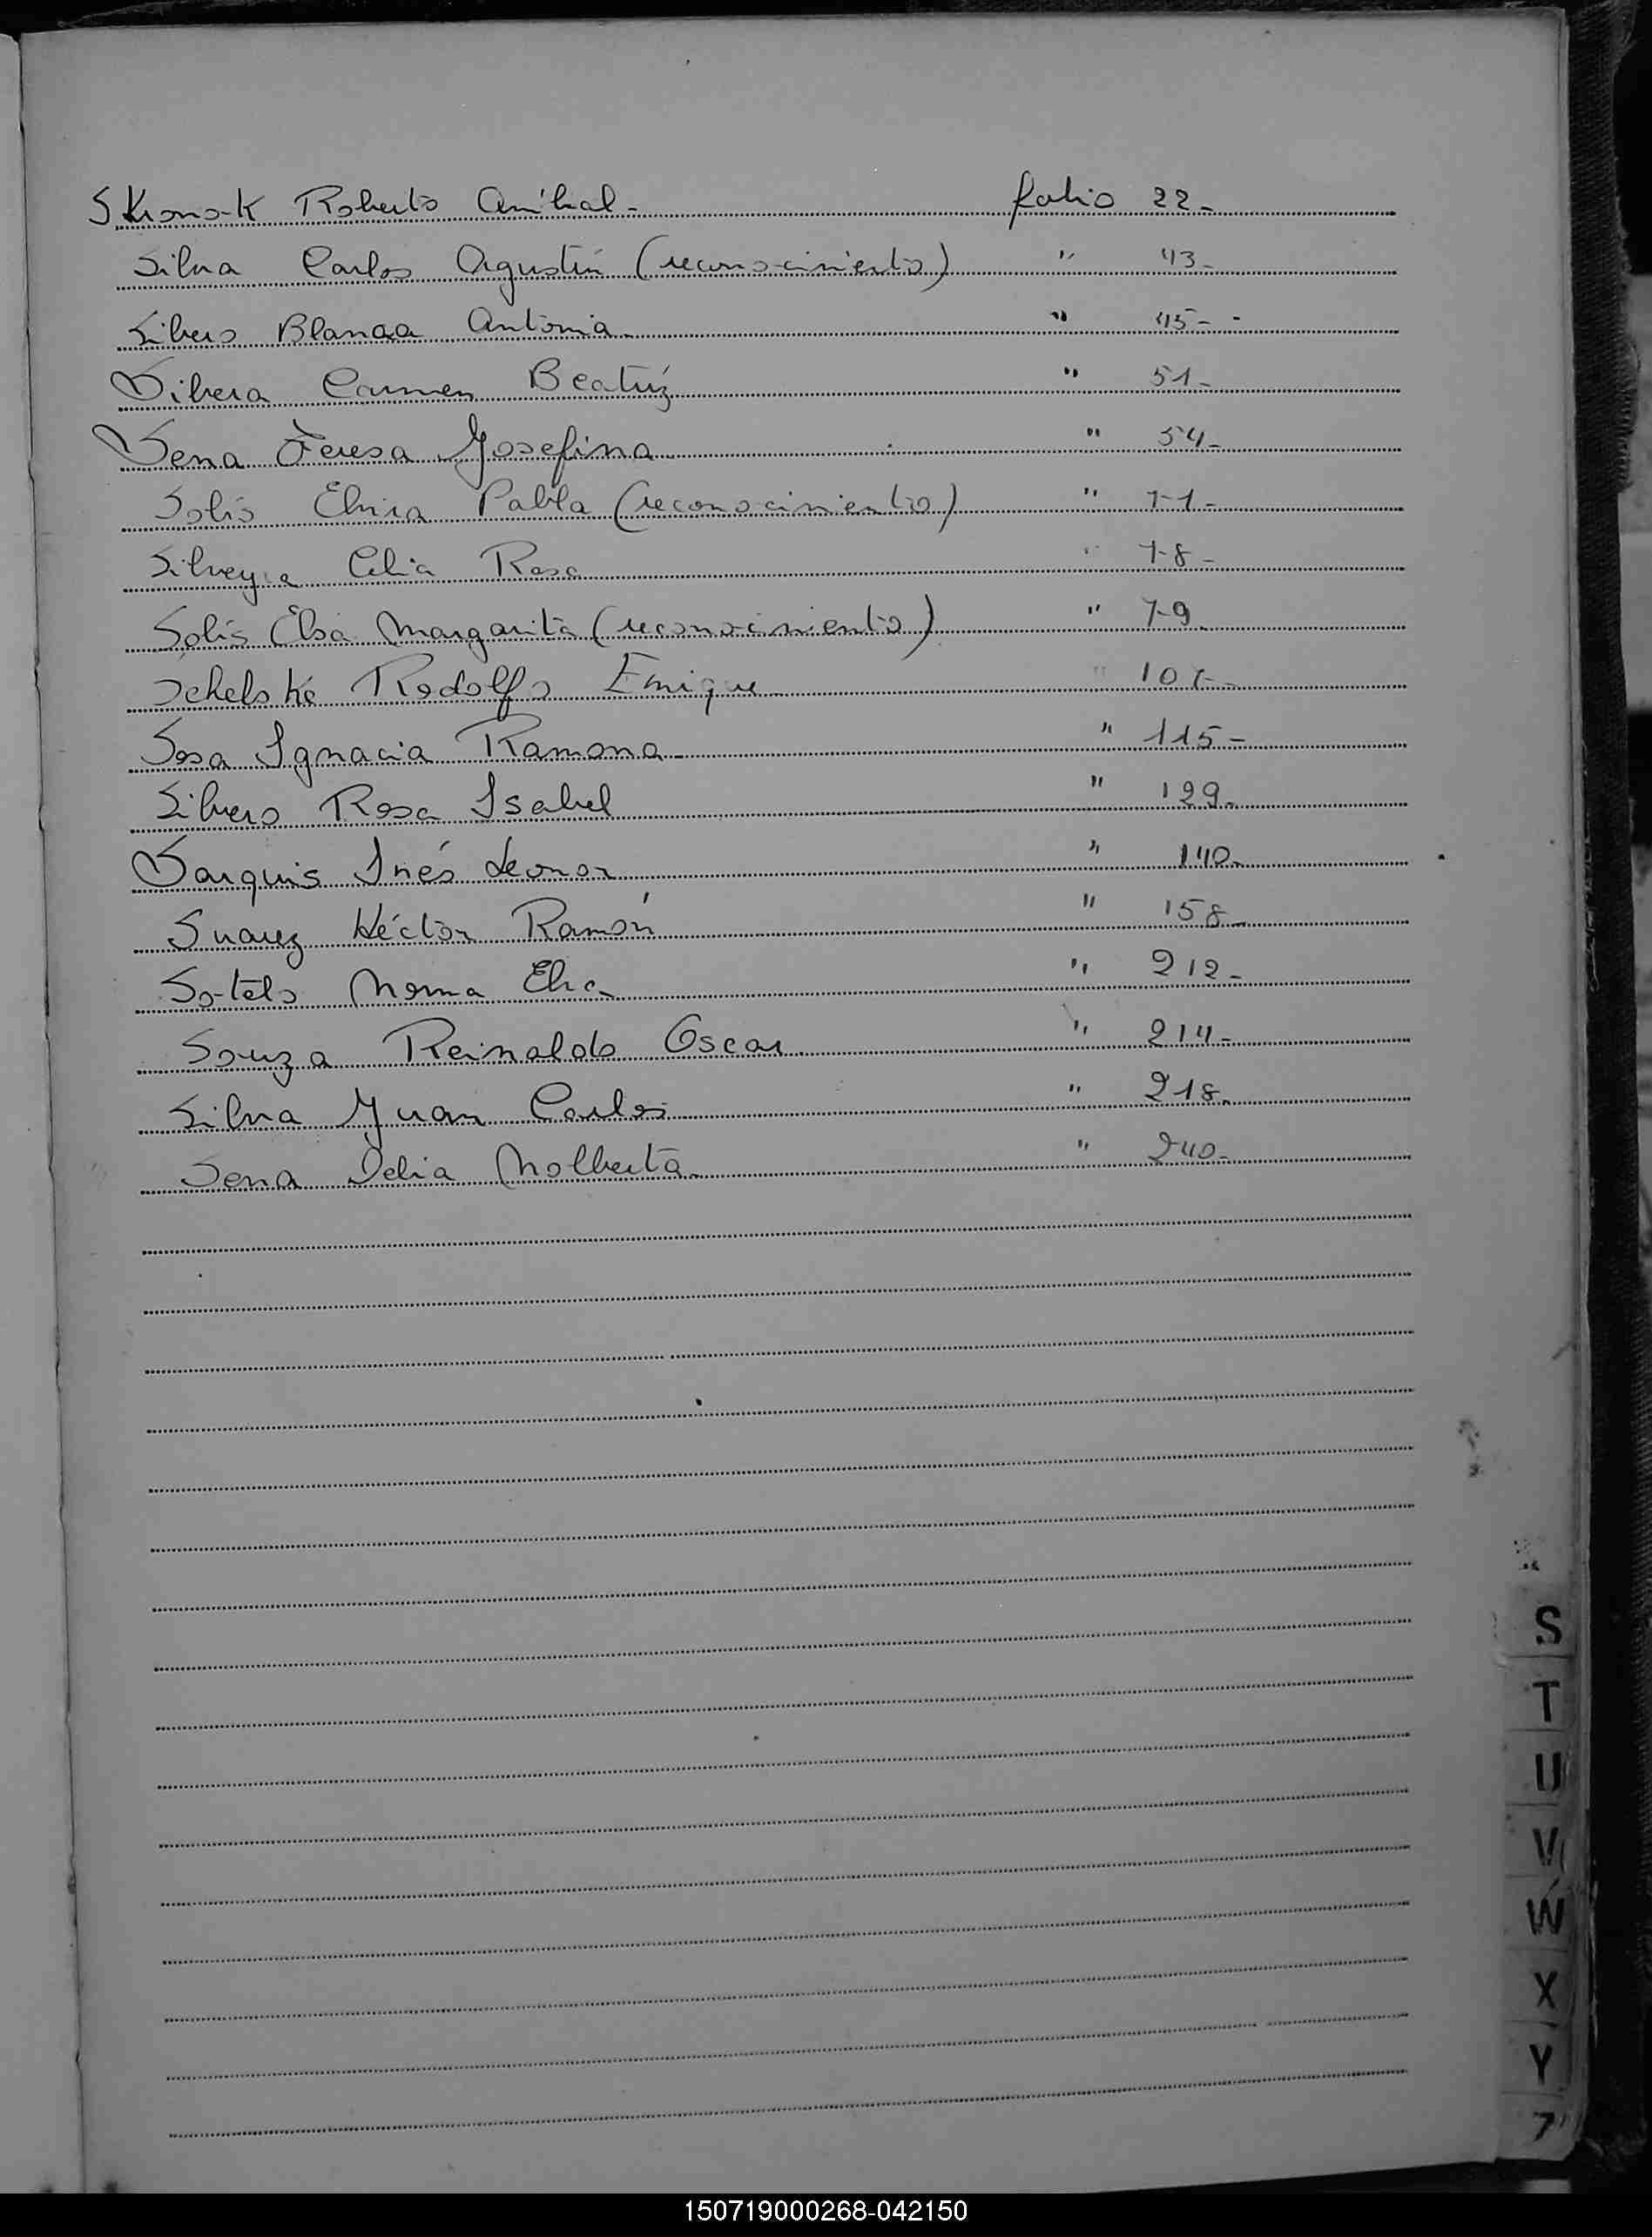 Skono-k Roberto Aníbal - folio 22-
Silva Carlos Agustín (reconocimiento) " 43-
Silvero Blanca Antonia " 45-
Silvera Carmen Beatríz " 51-
Sena Teresa Josefina " 54-
Solis Elvira Pabla (reconocimiento) " 71-
Silveyra Celia Rosa " 78-
Solis Elsa Margarita (reconocimiento) " 79
Schelske Rodolfo Enrique "
Sosa Ignacia Ramona " 115-
Silvero Rosa Isabel " 129-
Sarquis Inés Leonor " 140-
Suarez Héctor Ramón " 158-
Sotelo Norma " 212-
Souza Reinaldo Oscar " 214-
Silva Juan Carlos " 218-
Sena Delia Nolberta " 240-
S
T
U
V
W
X
Y
Z
150719000268-042150